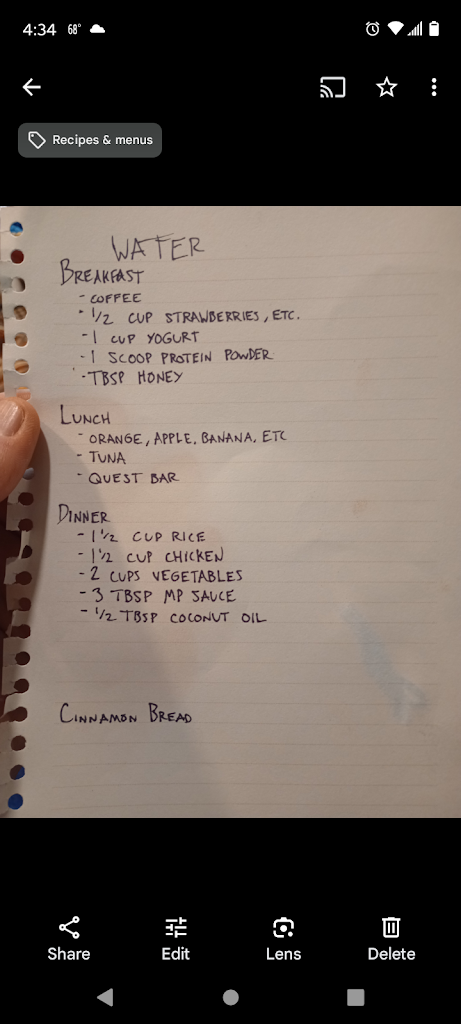 4:34 68°
Recipes & menus
WATER
BREAKFAST
- COFFEE
- 1/2 CUP STRAWBERRIES, ETC.
- 1 CUP YOGURT
- 1 SCOOP PROTEIN POWDER
- TBSP HONEY
LUNCH
- ORANGE, APPLE, BANANA, ETC
- TUNA
- QUEST BAR
DINNER
- 1 1/2 CUP RICE
- 1 1/2 CUP CHICKEN
- 2 CUPS VEGETABLES
- 3 TBSP MP SAUCE
- 1/2 TBSP COCONUT OIL
CINNAMON BREAD
Share Edit Lens Delete